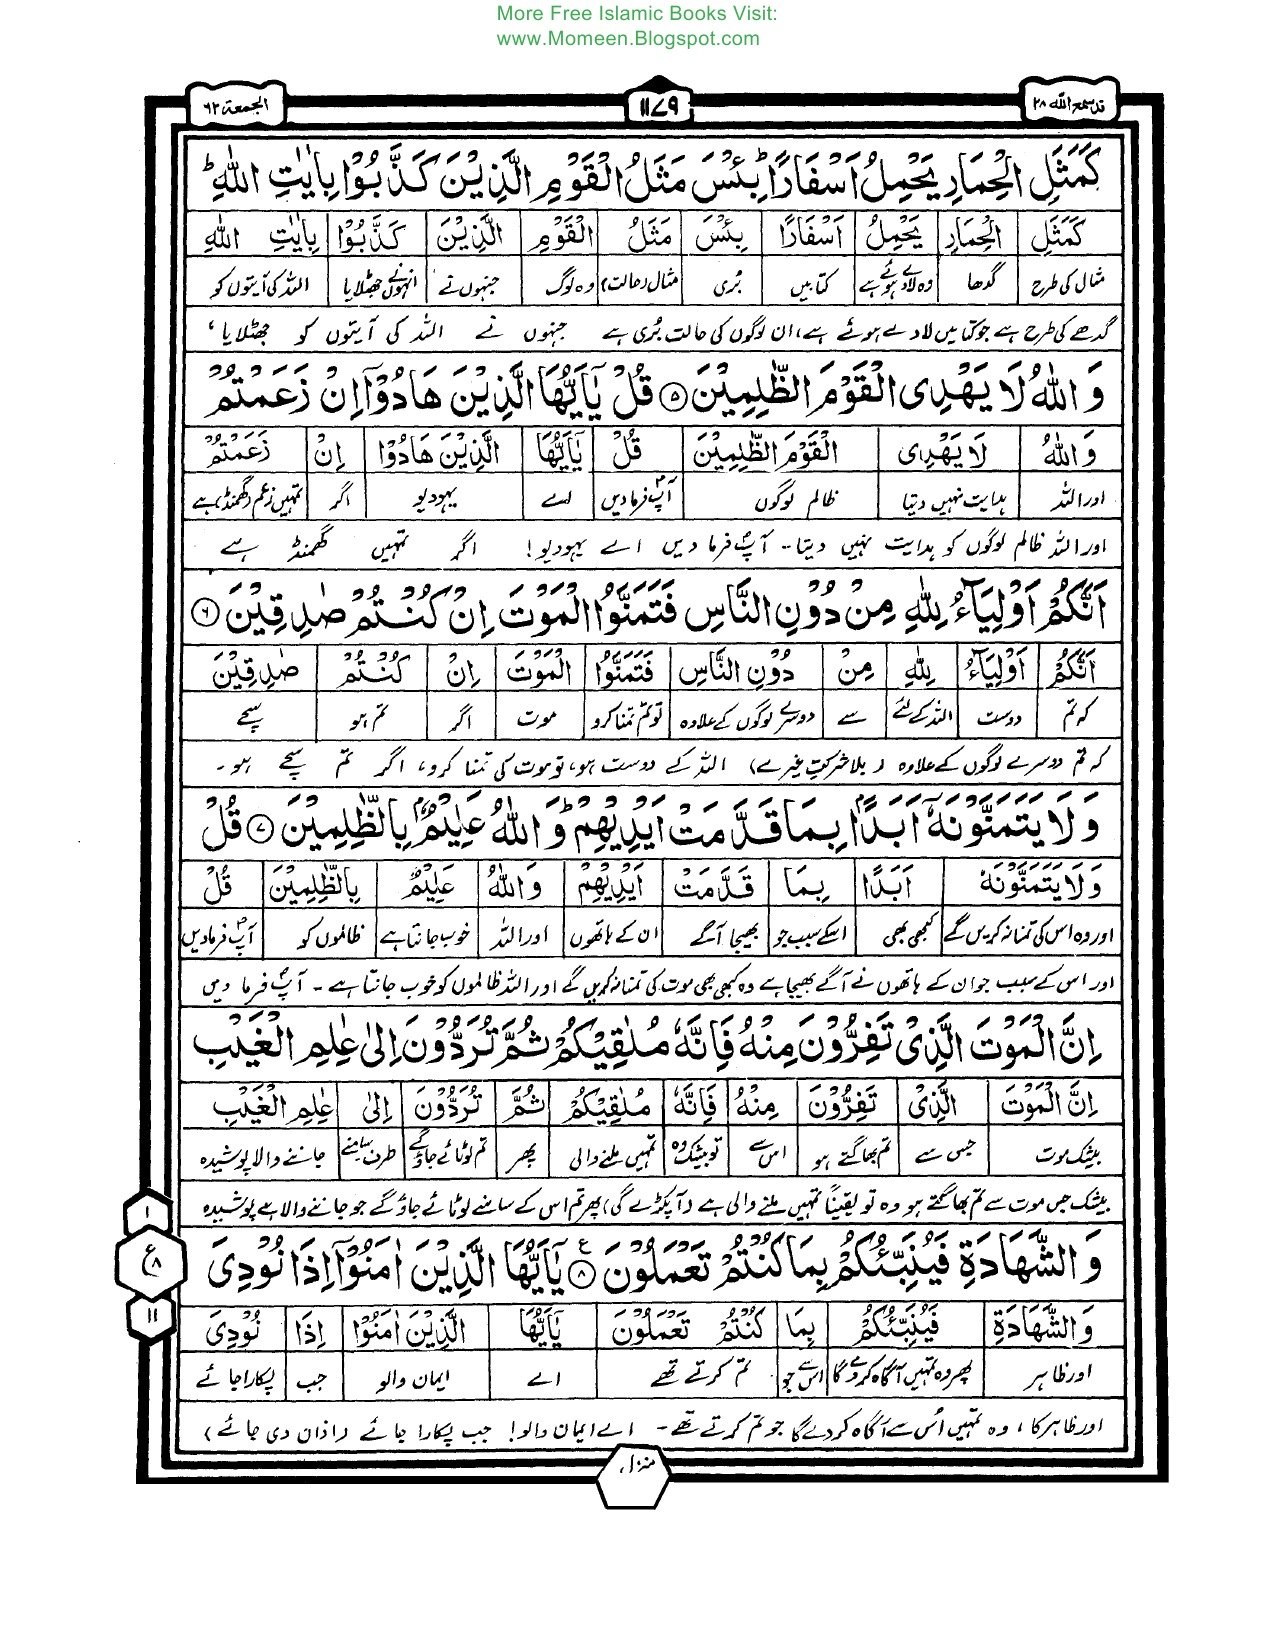 More Free Islamic Books Visit:
www.Momeen.Blogspot.com
قد سمع الله ۲۸
۱۱۷۹
الجمعة ۶۲
كَمَثَلِ الْحِمَارِ يَحْمِلُ اَسْفَارًا ؕ بِئْسَ مَثَلُ الْقَوْمِ الَّذِيْنَ كَذَّبُوْا بِاٰيٰتِ اللّٰهِ ؕ
كَمَثَلِ الْحِمَارِ يَحْمِلُ اَسْفَارًا بِئْسَ مَثَلُ الْقَوْمِ الَّذِيْنَ كَذَّبُوْا بِاٰيٰتِ اللّٰهِ
مثال کی طرح گدھا وہ لادے ہوئے ہے کتابیں بُری مثال (حالت) وہ لوگ جنہوں نے انہوں نے جھٹلایا اللہ کی آیتوں کو
گدھے کی طرح ہے جو کتابیں لادے ہوئے ہے، ان لوگوں کی حالت بُری ہے جنہوں نے اللہ کی آیتوں کو جھٹلایا،
وَ اللّٰهُ لَا يَهْدِی الْقَوْمَ الظّٰلِمِيْنَ ۵ قُلْ يٰۤاَيُّهَا الَّذِيْنَ هَادُوْۤا اِنْ زَعَمْتُمْ
وَ اللّٰهُ لَا يَهْدِی الْقَوْمَ الظّٰلِمِيْنَ قُلْ يٰۤاَيُّهَا الَّذِيْنَ هَادُوْۤا اِنْ زَعَمْتُمْ
اور اللہ ہدایت نہیں دیتا ظالم لوگوں آپؐ فرما دیں اے یہودیو اگر تمہیں زعم (گھمنڈ) ہے
اور اللہ ظالم لوگوں کو ہدایت نہیں دیتا۔ آپؐ فرما دیں اے یہودیو! اگر تمہیں گھمنڈ ہے
اَنَّكُمْ اَوْلِيَآءُ لِلّٰهِ مِنْ دُوْنِ النَّاسِ فَتَمَنَّوُا الْمَوْتَ اِنْ كُنْتُمْ صٰدِقِيْنَ ۶
اَنَّكُمْ اَوْلِيَآءُ لِلّٰهِ مِنْ دُوْنِ النَّاسِ فَتَمَنَّوُا الْمَوْتَ اِنْ كُنْتُمْ صٰدِقِيْنَ
کہ تم دوست اللہ کے لئے سے دوسرے لوگوں کے علاوہ تو تم تمنا کرو موت اگر تم ہو سچے
کہ تم دوسرے لوگوں کے علاوہ (بلا شرکتِ غیرے) اللہ کے دوست ہو، تو موت کی تمنا کرو، اگر تم سچے ہو۔
وَ لَا يَتَمَنَّوْنَهٗۤ اَبَدًۢا بِمَا قَدَّمَتْ اَيْدِيْهِمْ ؕ وَ اللّٰهُ عَلِيْمٌۢ بِالظّٰلِمِيْنَ ۷ قُلْ
وَ لَا يَتَمَنَّوْنَهٗ اَبَدًۢا بِمَا قَدَّمَتْ اَيْدِيْهِمْ وَ اللّٰهُ عَلِيْمٌ بِالظّٰلِمِيْنَ قُلْ
اور وہ اس کی تمنا نہ کریں گے کبھی بھی اسکے سبب جو بھیجا آگے ان کے ہاتھوں اور اللہ خوب جانتا ہے ظالموں کو آپؐ فرما دیں
اور اس کے سبب جو ان کے ہاتھوں نے آگے بھیجا ہے وہ کبھی بھی موت کی تمنا نہ کریں گے اور اللہ ظالموں کو خوب جانتا ہے۔ آپؐ فرما دیں
اِنَّ الْمَوْتَ الَّذِیْ تَفِرُّوْنَ مِنْهُ فَاِنَّهٗ مُلٰقِيْكُمْ ثُمَّ تُرَدُّوْنَ اِلٰى عٰلِمِ الْغَيْبِ
اِنَّ الْمَوْتَ الَّذِیْ تَفِرُّوْنَ مِنْهُ فَاِنَّهٗ مُلٰقِيْكُمْ ثُمَّ تُرَدُّوْنَ اِلٰى عٰلِمِ الْغَيْبِ
بیشک موت جس سے تم بھاگتے ہو اس سے تو بیشک وہ تمہیں ملنے والی پھر تم لوٹائے جاؤ گے طرف سامنے جاننے والا پوشیدہ
بیشک جس موت سے تم بھاگتے ہو وہ تو یقیناً تمہیں ملنے والی ہے (آپکڑے گی) پھر تم اس کے سامنے لوٹائے جاؤ گے جو جاننے والا ہے پوشیدہ
وَ الشَّهَادَةِ فَيُنَبِّئُكُمْ بِمَا كُنْتُمْ تَعْمَلُوْنَ ۸ ع يٰۤاَيُّهَا الَّذِيْنَ اٰمَنُوْۤا اِذَا نُوْدِیَ
وَ الشَّهَادَةِ فَيُنَبِّئُكُمْ بِمَا كُنْتُمْ تَعْمَلُوْنَ يٰۤاَيُّهَا الَّذِيْنَ اٰمَنُوْۤا اِذَا نُوْدِیَ
اور ظاہر پھر وہ تمہیں آگاہ کر دے گا اس سے جو تم کرتے تھے اے ایمان والو جب پکارا جائے
اور ظاہر کا، وہ تمہیں اُس سے آگاہ کر دے گا جو تم کرتے تھے۔ اے ایمان والو! جب پکارا جائے (اذان دی جائے)
۱
ع ۸
۱۱
منزل